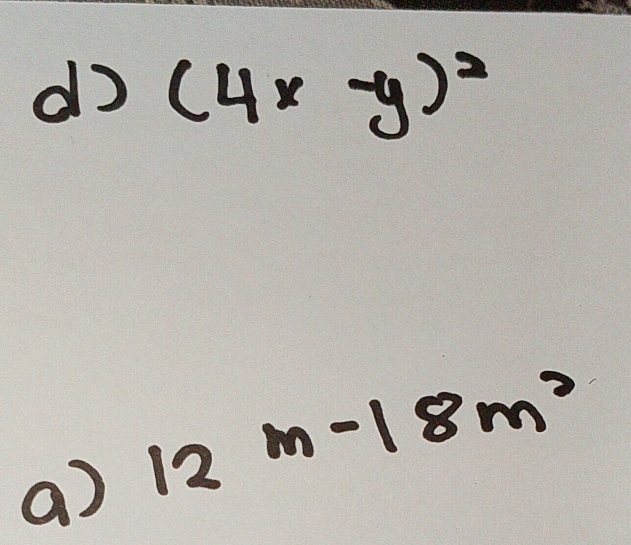 d) (4x -y)²
a) 12 m-18m²